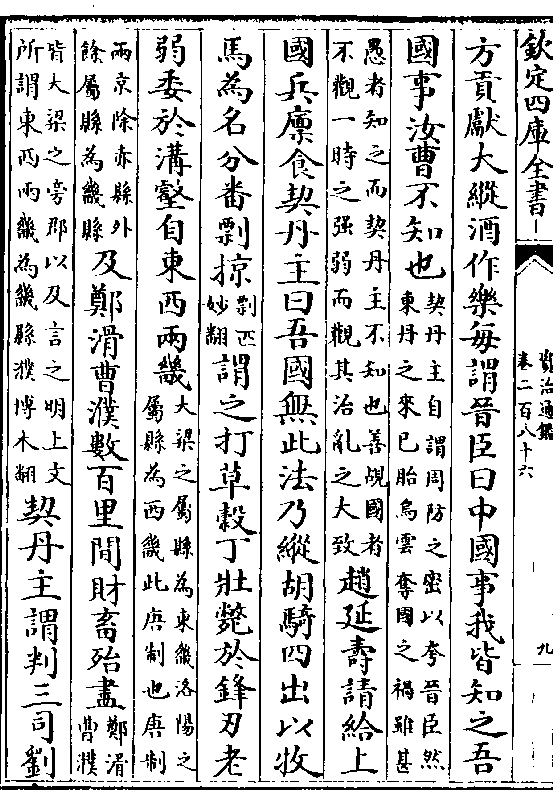 欽定四庫全書
資治通鑑
卷二百八十六
九
方貢獻大縱酒作樂每謂晉臣曰中國事我皆知之吾
國事汝曹不知也契丹主自謂周防之密以夸晉臣然東丹之來已胎烏雲奪國之禍雖甚
愚者知之而契丹主不知也善覘國者不觀一時之强弱而觀其治亂之大致趙延壽請給上
國兵廪食契丹主曰吾國無此法乃縱胡騎四出以牧
馬為名分番剽掠剽匹妙翻謂之打草穀丁壯斃於鋒刃老
弱委於溝壑自東西兩畿大梁之屬縣為東畿洛陽之屬縣為西畿此唐制也唐制
兩京除赤縣外餘屬縣為畿縣及鄭滑曹濮數百里間財畜殆盡鄭滑曹濮
皆大梁之旁郡以及言之明上文所謂東西兩畿為畿縣濮博木翻契丹主謂判三司劉